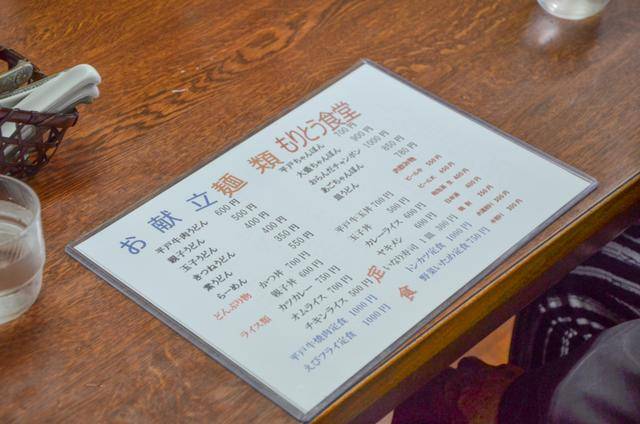 お献立 麺類 もりとう食堂
平戸牛肉うどん 600円
親子うどん 500円
玉子うどん 400円
きつねうどん 400円
素うどん 350円
らーめん 550円
平戸ちゃんぽん 700円
大盛ちゃんぽん 900円
おらんだチャンポン 1000円
あごちゃんぽん 850円
皿うどん 785円
どんぶり物
かつ丼 700円
親子丼 600円
平戸牛玉丼 700円
玉子丼 500円
ライス類
カツカレー 750円
オムライス 700円
チキンライス 500円
カレーライス 600円
ヤキメシ 600円
いなり寿司 1皿 300円
定食
平戸牛焼肉定食 1000円
えびフライ定食 1000円
トンカツ定食 1000円
野菜いため定食 750円